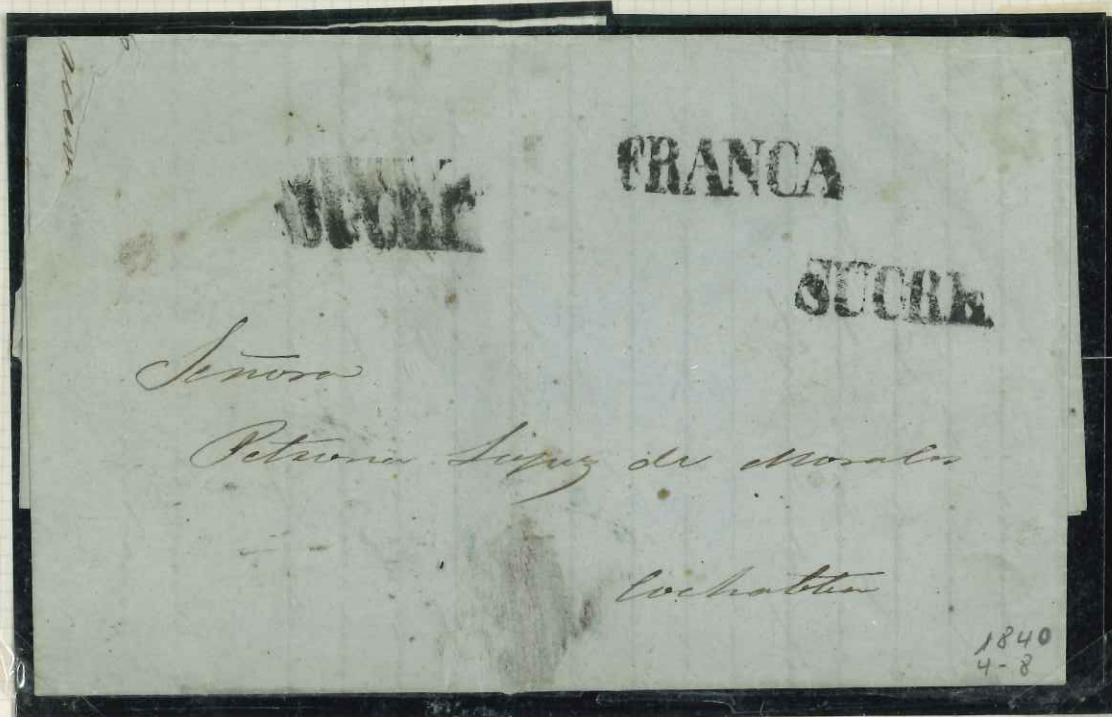 FRANCA
SUCRE
SUCRE
Señora
Petrona Lopez de Morales
Cochabba
1840
4-8